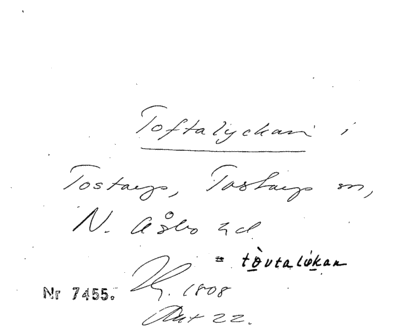 Toftalyckan i
Tostarps, Tostarps sn,
N. Åsbo hd.
= tòvtalẏkan
Nr 7455.
1808
Akt 22.